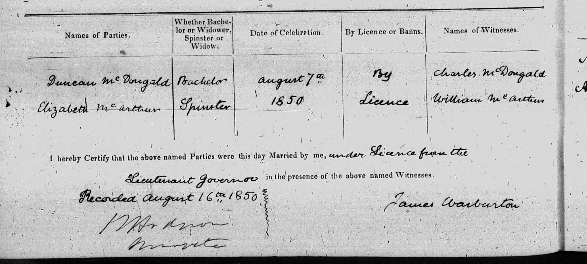 Names of Parties.
Whether Bache-
lor or Widower,
Spinster or
Widow.
Date of Celebration.
By Licence or Banns.
Names of Witnesses.
Duncan McDougald Bachelor August 7th By Charles McDougald
Elizabeth McArthur Spinster 1850 Licence William McArthur
I hereby Certify that the above named Parties were this day Married by me, under Licence from the
Lieutenant Governor in the presence of the above named Witnesses.
Recorded August 16th 1850
James Warburton
Minister